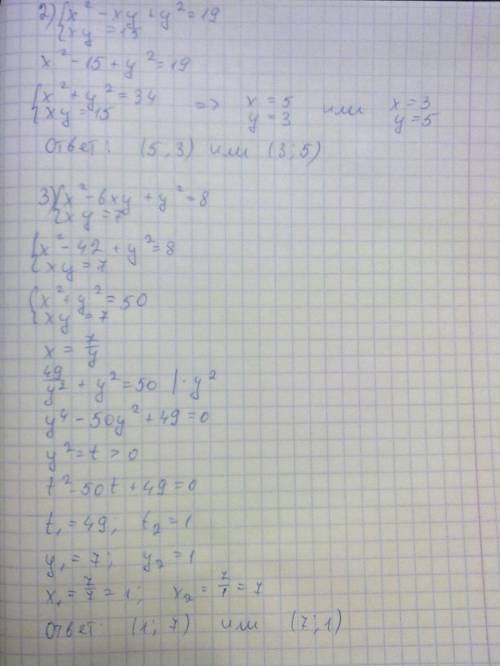 2) { x² - xy + y² = 19
{ xy = 15
x² - 15 + y² = 19
{ x² + y² = 34
{ xy = 15 => x = 5 y = 3 или x = 3 y = 5
Ответ: (5; 3) или (3; 5)
3) { x² - 6xy + y² = 8
{ xy = 7
{ x² - 42 + y² = 8
{ xy = 7
{ x² + y² = 50
{ xy = 7
x = 7/y
49/y² + y² = 50 | · y²
y⁴ - 50y² + 49 = 0
y² = t > 0
t² - 50t + 49 = 0
t₁ = 49; t₂ = 1
y₁ = 7; y₂ = 1
x₁ = 7/7 = 1; x₂ = 7/1 = 7
Ответ: (1; 7) или (7; 1)